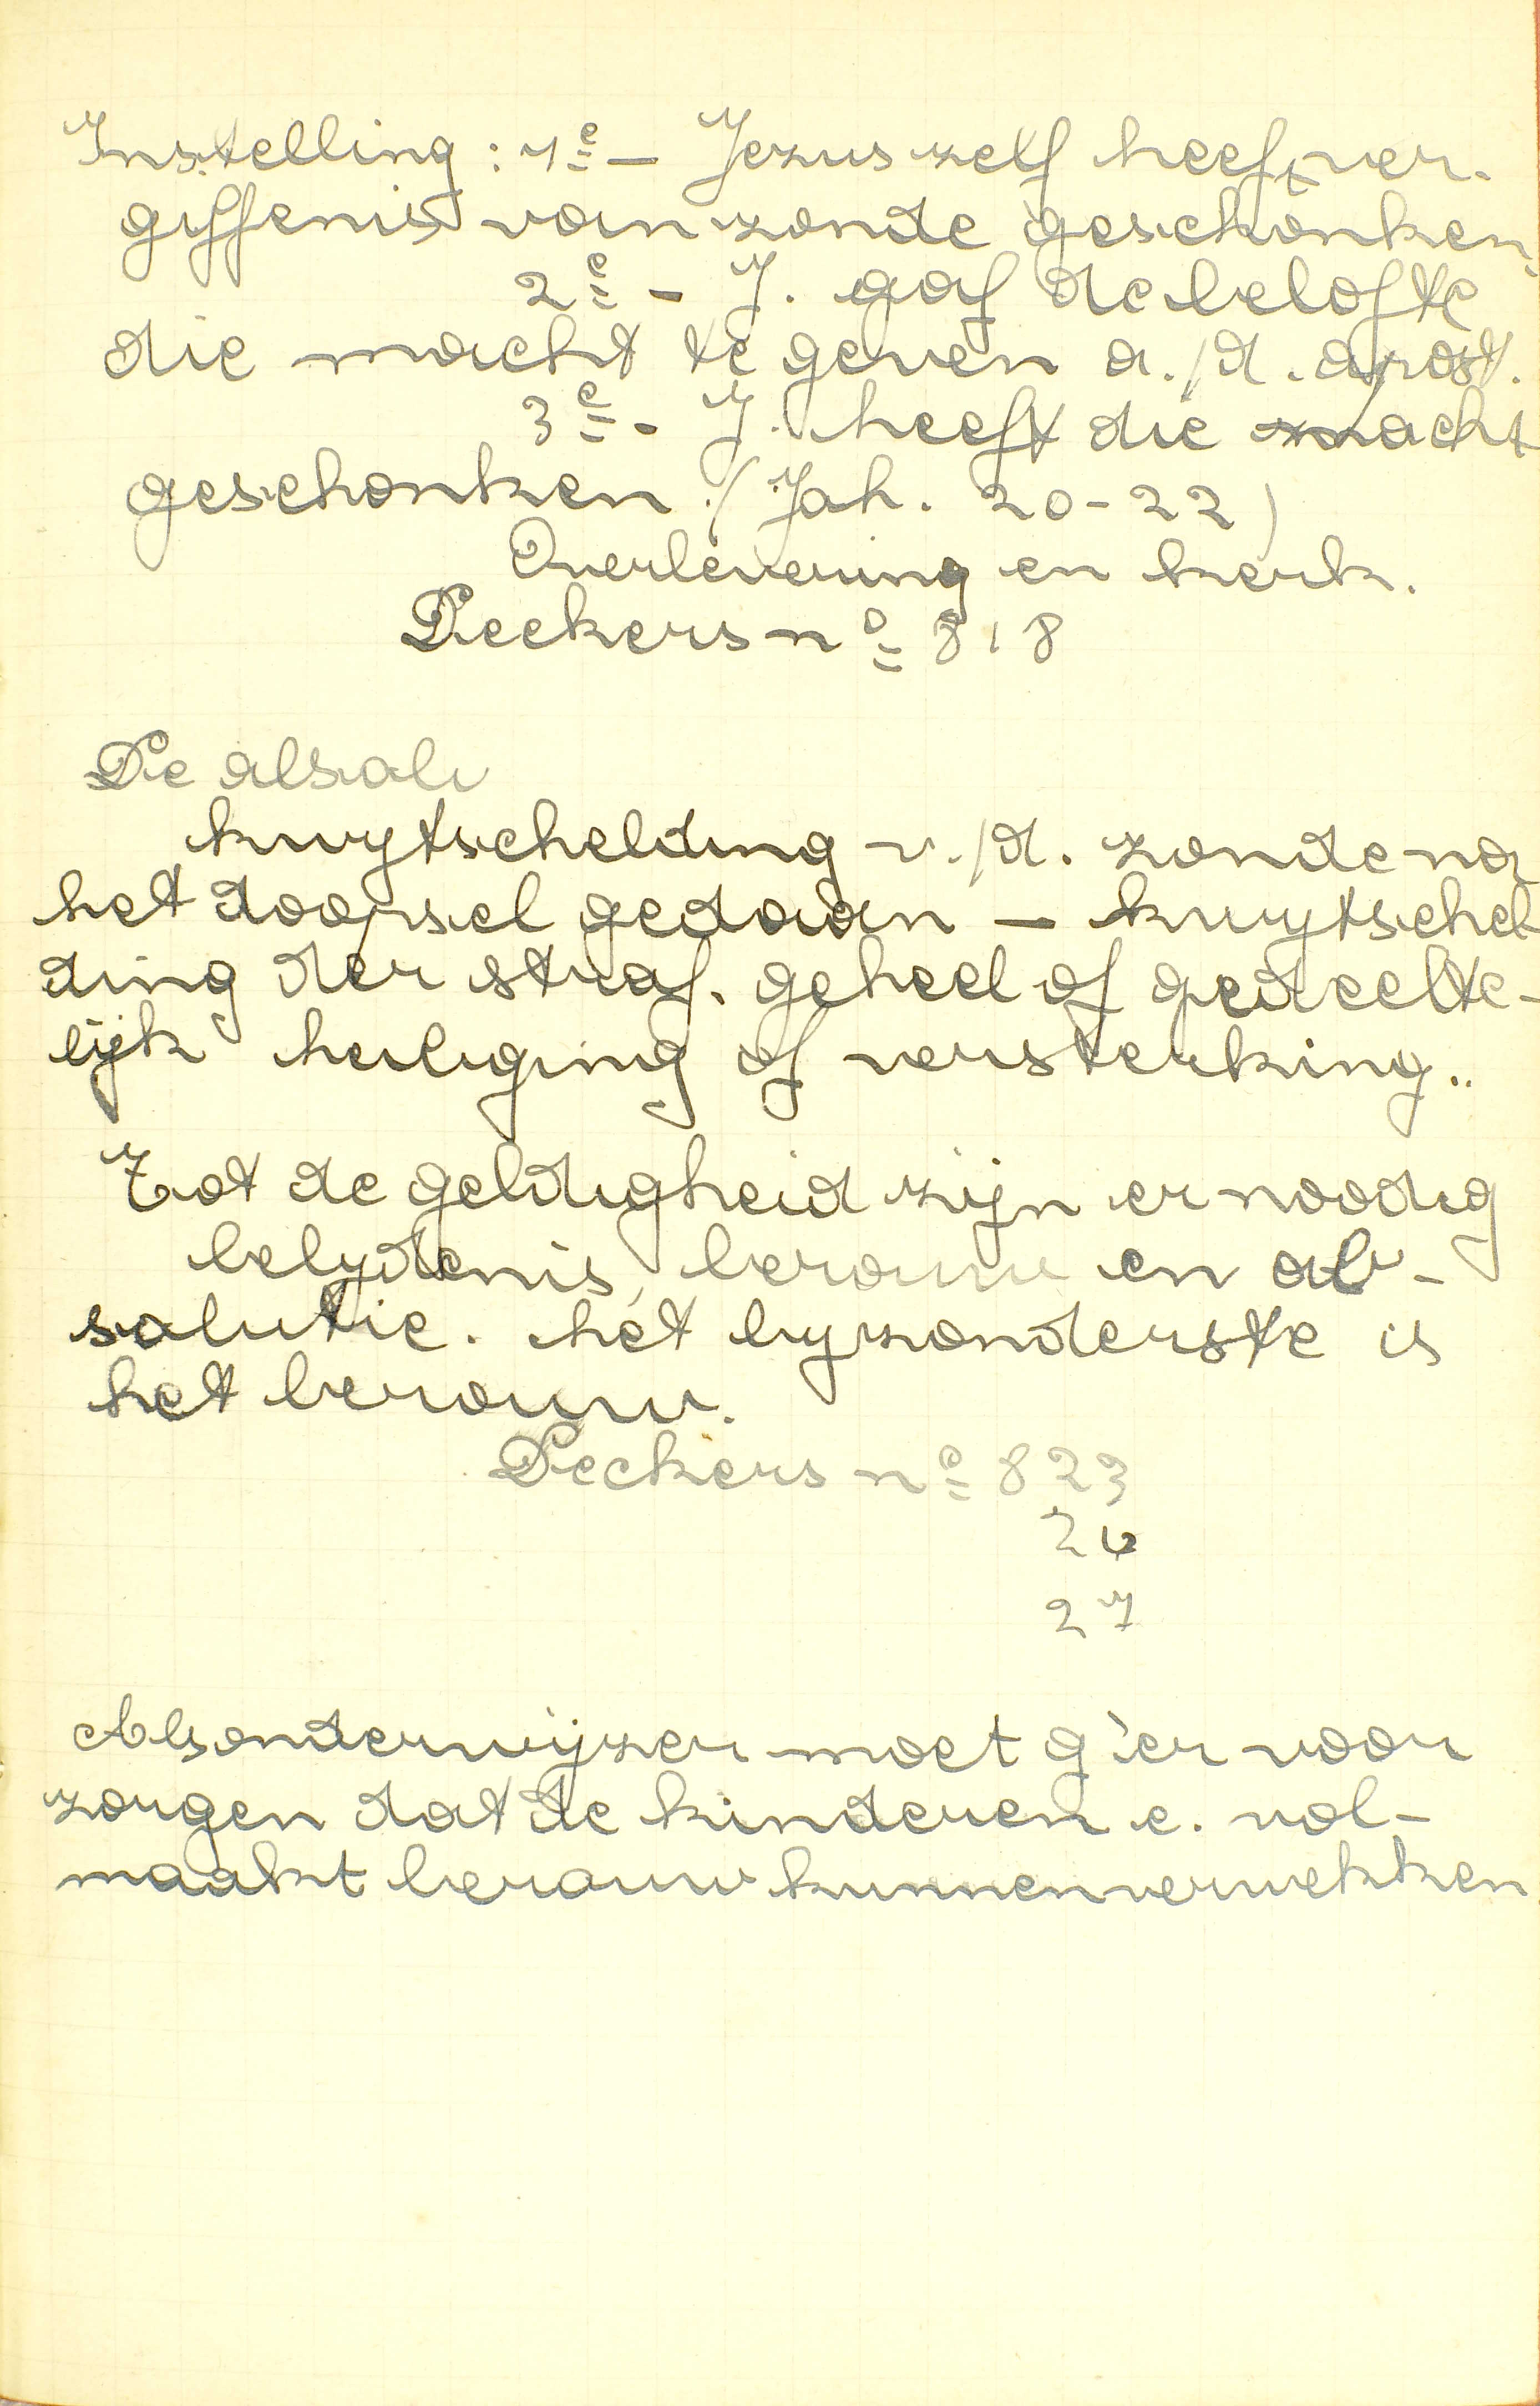 Instelling : 1e - Jezus zelf heeft ver-
giffenis van zonde geschonken,
2e - J. gaf de belofte
die macht te geven a./d. apost.
3e - J. heeft die macht
geschonken. (Joh. 20-22)
Overlevering en kerk.
Deckers no 818
De absol
kwytschelding v./d. zonde na
het doopsel gedaan - kwytschel
ding der straf. geheel of gedeelte-
lijk heiliging of versterking..
Tot de geldigheid zijn er noodig
belydenis, berouw en ab-
solutie. het byzonderste is
het berouw.
Deckers no 823
26
27
Als onderwijzer moet g'er voor
zorgen dat de kinderen e. vol-
maakt berouw kunnen verwekken